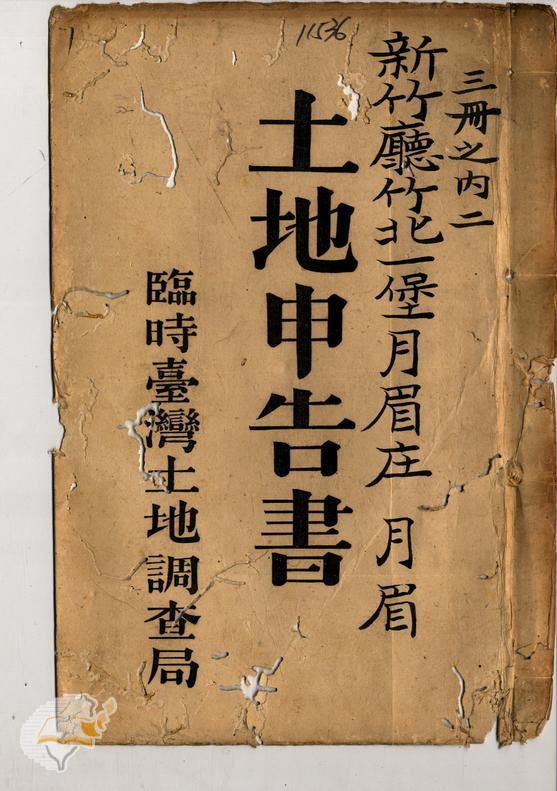 11536
三冊之内二
新竹廳竹北一堡月眉庄 月眉
土地申告書
臨時臺灣土地調查局